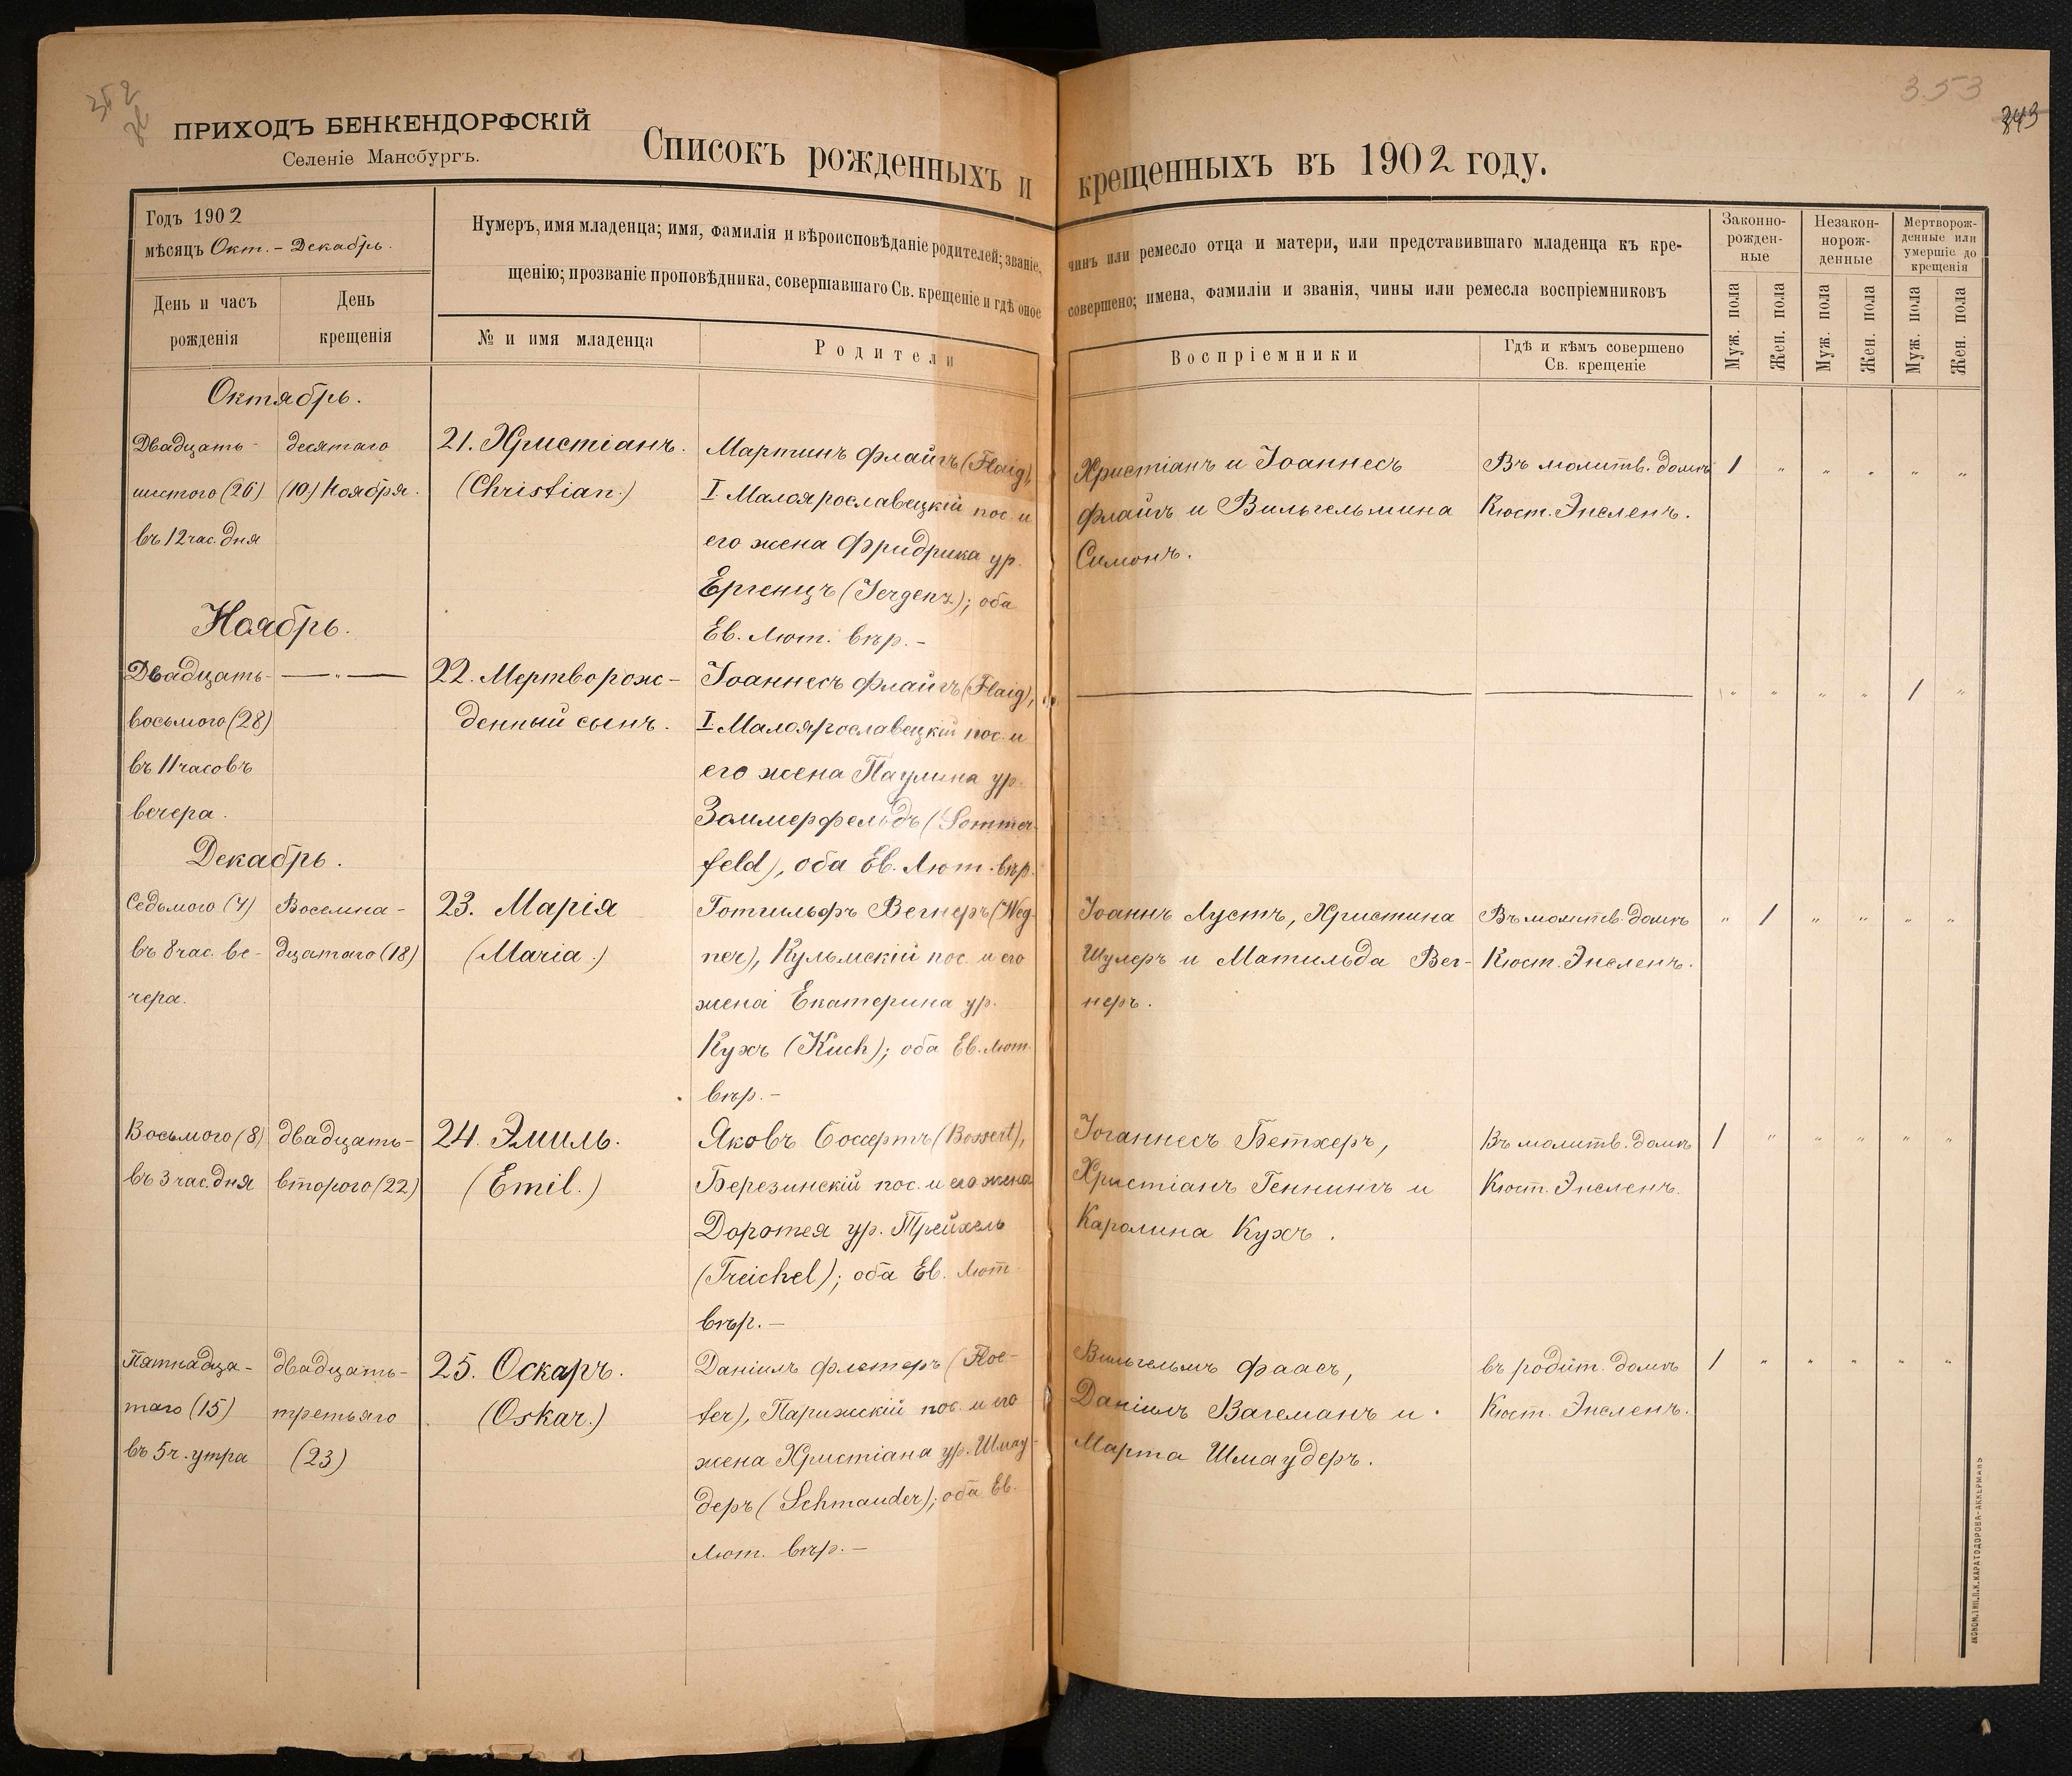 352
353
343
ПРИХОДЪ БЕНКЕНДОРФСКІЙ
Селеніе Мансбургъ.
Списокъ рожденныхъ и крещенныхъ въ 1902 году.
Годъ 1902
мѣсяцъ Окт. - Декабрь.
Нумеръ, имя младенца; имя, фамилія и вѣроисповѣданіе родителей; званіе, чинъ или ремесло отца и матери, или представившаго младенца къ кре-
щенію; прозваніе проповѣдника, совершавшаго Св. крещеніе и гдѣ оное совершено; имена, фамиліи и званія, чины или ремесла воспріемниковъ
День и часъ
рожденія
День
крещенія
№ и имя младенца
Родители
Воспріемники
Гдѣ и кѣмъ совершено
Св. крещеніе
Законно-
рожден-
ные
Незакон-
норож-
денные
Мертворож-
денные или
умершіе до
крещенія
Муж. пола
Жен. пола
Муж. пола
Жен. пола
Муж. пола
Жен. пола
Октябрь.
Двадцать-
шестого (26)
въ 12 час. дня
десятаго
(10) Ноября.
21. Христіанъ.
(Christian.)
Мартинъ Флайгъ (Flaig),
I Малоярославецкій пос. и
его жена Фридрика ур.
Ергенцъ (Jergenz); оба
Ев. Лют. вѣр. -
Христіанъ и Іоаннесъ
Флайгъ и Вильгельмина
Симонъ.
Въ молитв. домѣ
Кюст. Энсленъ.
1 " " " " "
Ноябрь.
Двадцать-
восьмого (28)
въ 11 часовъ
вечера.
— " —
22. Мертворож-
денный сынъ.
Іоаннесъ Флайгъ (Flaig),
I Малоярославецкій пос. и
его жена Паулина ур.
Заммерфельдъ (Sommer-
feld), оба Ев. Лют. вѣр.
" " " " 1 "
Декабрь.
Седьмого (7)
въ 8 час. ве-
чера.
Восемна-
дцатаго (18)
23. Марія
(Maria.)
Готгильфъ Вегнеръ (Weg-
ner), Кульмскій пос. и его
жена Екатерина ур.
Кухъ (Kuch); оба Ев. Лют.
вѣр. -
Іоаннъ Лустъ, Христина
Шулеръ и Матильда Вег-
неръ.
Въ молитв. домѣ
Кюст. Энсленъ.
" 1 " " " "
Восьмого (8)
въ 3 час. дня
двадцать-
второго (22)
24. Эмиль.
(Emil.)
Яковъ Боссертъ (Bossert),
Березинскій пос. и его жена
Доротея ур. Трейхель
(Treichel); оба Ев. Лют.
вѣр. -
Іоганнесъ Бетхеръ,
Христіанъ Геннингъ и
Каролина Кухъ.
Въ молитв. домѣ
Кюст. Энсленъ.
1 " " " " "
Пятнадца-
таго (15)
въ 5 ч. утра
двадцать-
третьяго
(23)
25. Оскаръ.
(Oskar.)
Даніилъ Флетеръ (Floe-
ter), Парижскій пос. и его
жена Христіана ур. Шмау-
деръ (Schmauder); оба Ев.
Лют. вѣр. -
Вильгельмъ Фаасъ,
Даніилъ Вагеманъ и
Марта Шмаудеръ.
въ родит. домѣ
Кюст. Энсленъ.
1 " " " " "